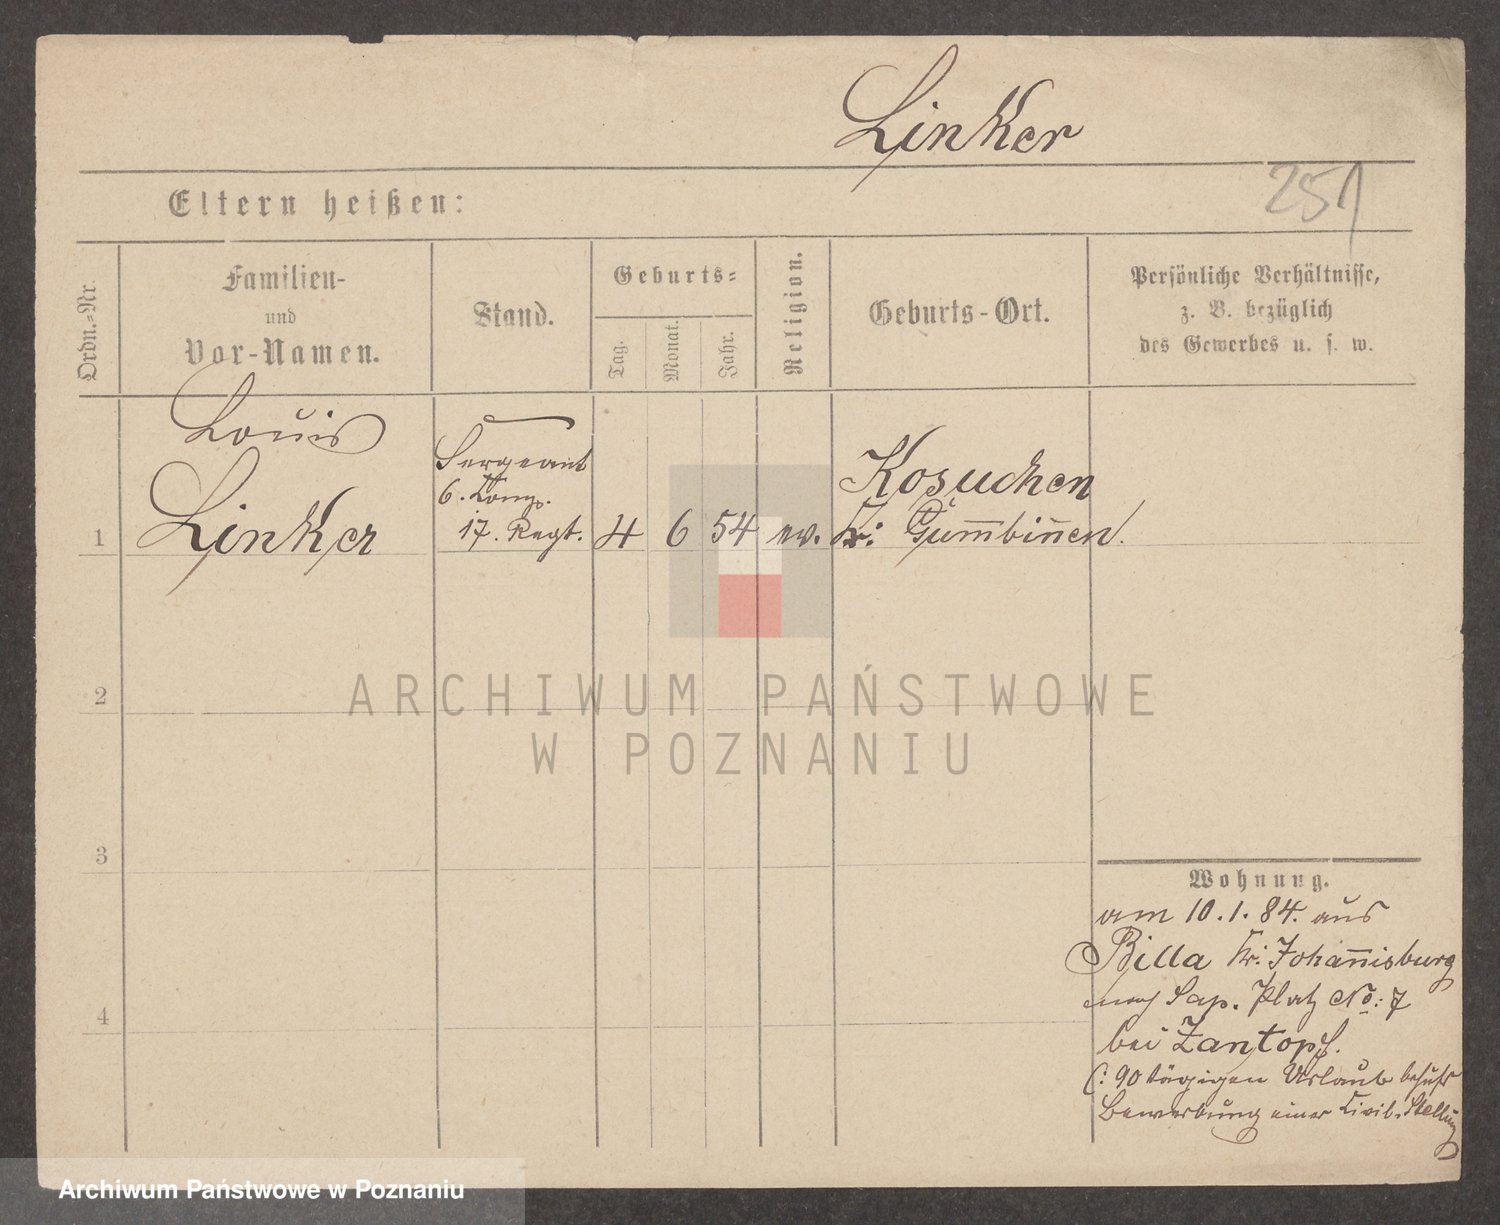 Linker
251
Eltern heißen:
Ordn.-Nr.
Familien-
und
Vor-Namen.
Stand.
Geburts-
Tag.
Monat.
Jahr.
Religion.
Geburts-Ort.
Persönliche Verhältnisse,
z. B. bezüglich
des Gewerbes u. s. w.
1
Louis
Linker
Sergeant
6. Comp.
17. Regt.
4
6
54
ev.
Kosuchen
Kr: Gum̅bin̅en.
2
3
4
Wohnung.
am 10.1.84. aus
Billa Kr: Johan̅isburg
nach Sap. Platz No: 7
bei Zantopf.
(: 90 tägigen Urlaub behufs
Bewerbung einer Civil-Stellung
ARCHIWUM PAŃSTWOWE
W POZNANIU
Archiwum Państwowe w Poznaniu